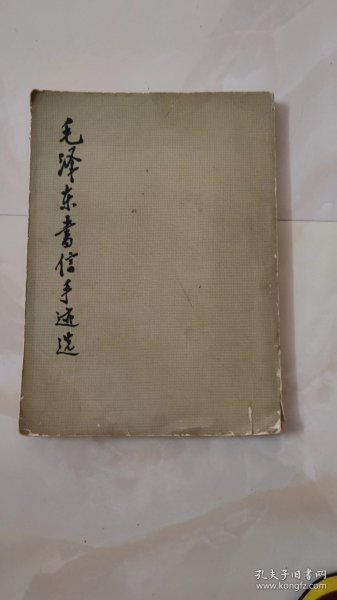 毛泽东书信手迹选
孔夫子旧书网
kongfz.com